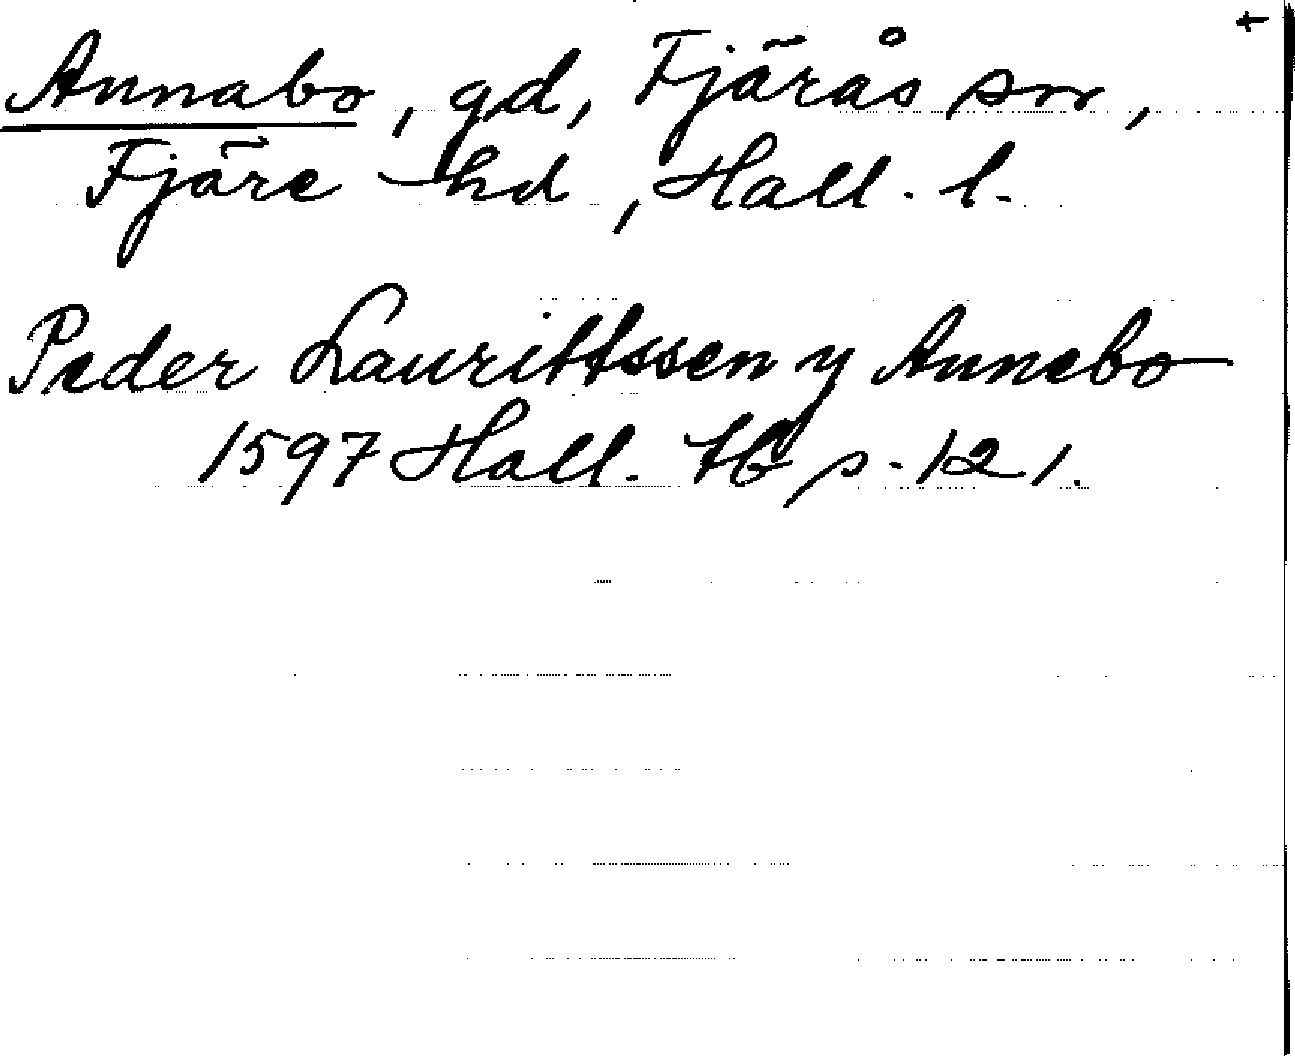 Annabo, gd, Fjärås sn,
Fjäre hd, Hall. l.
Peder Laurittssen y Annebo
1597 Hall. tb s. 121.